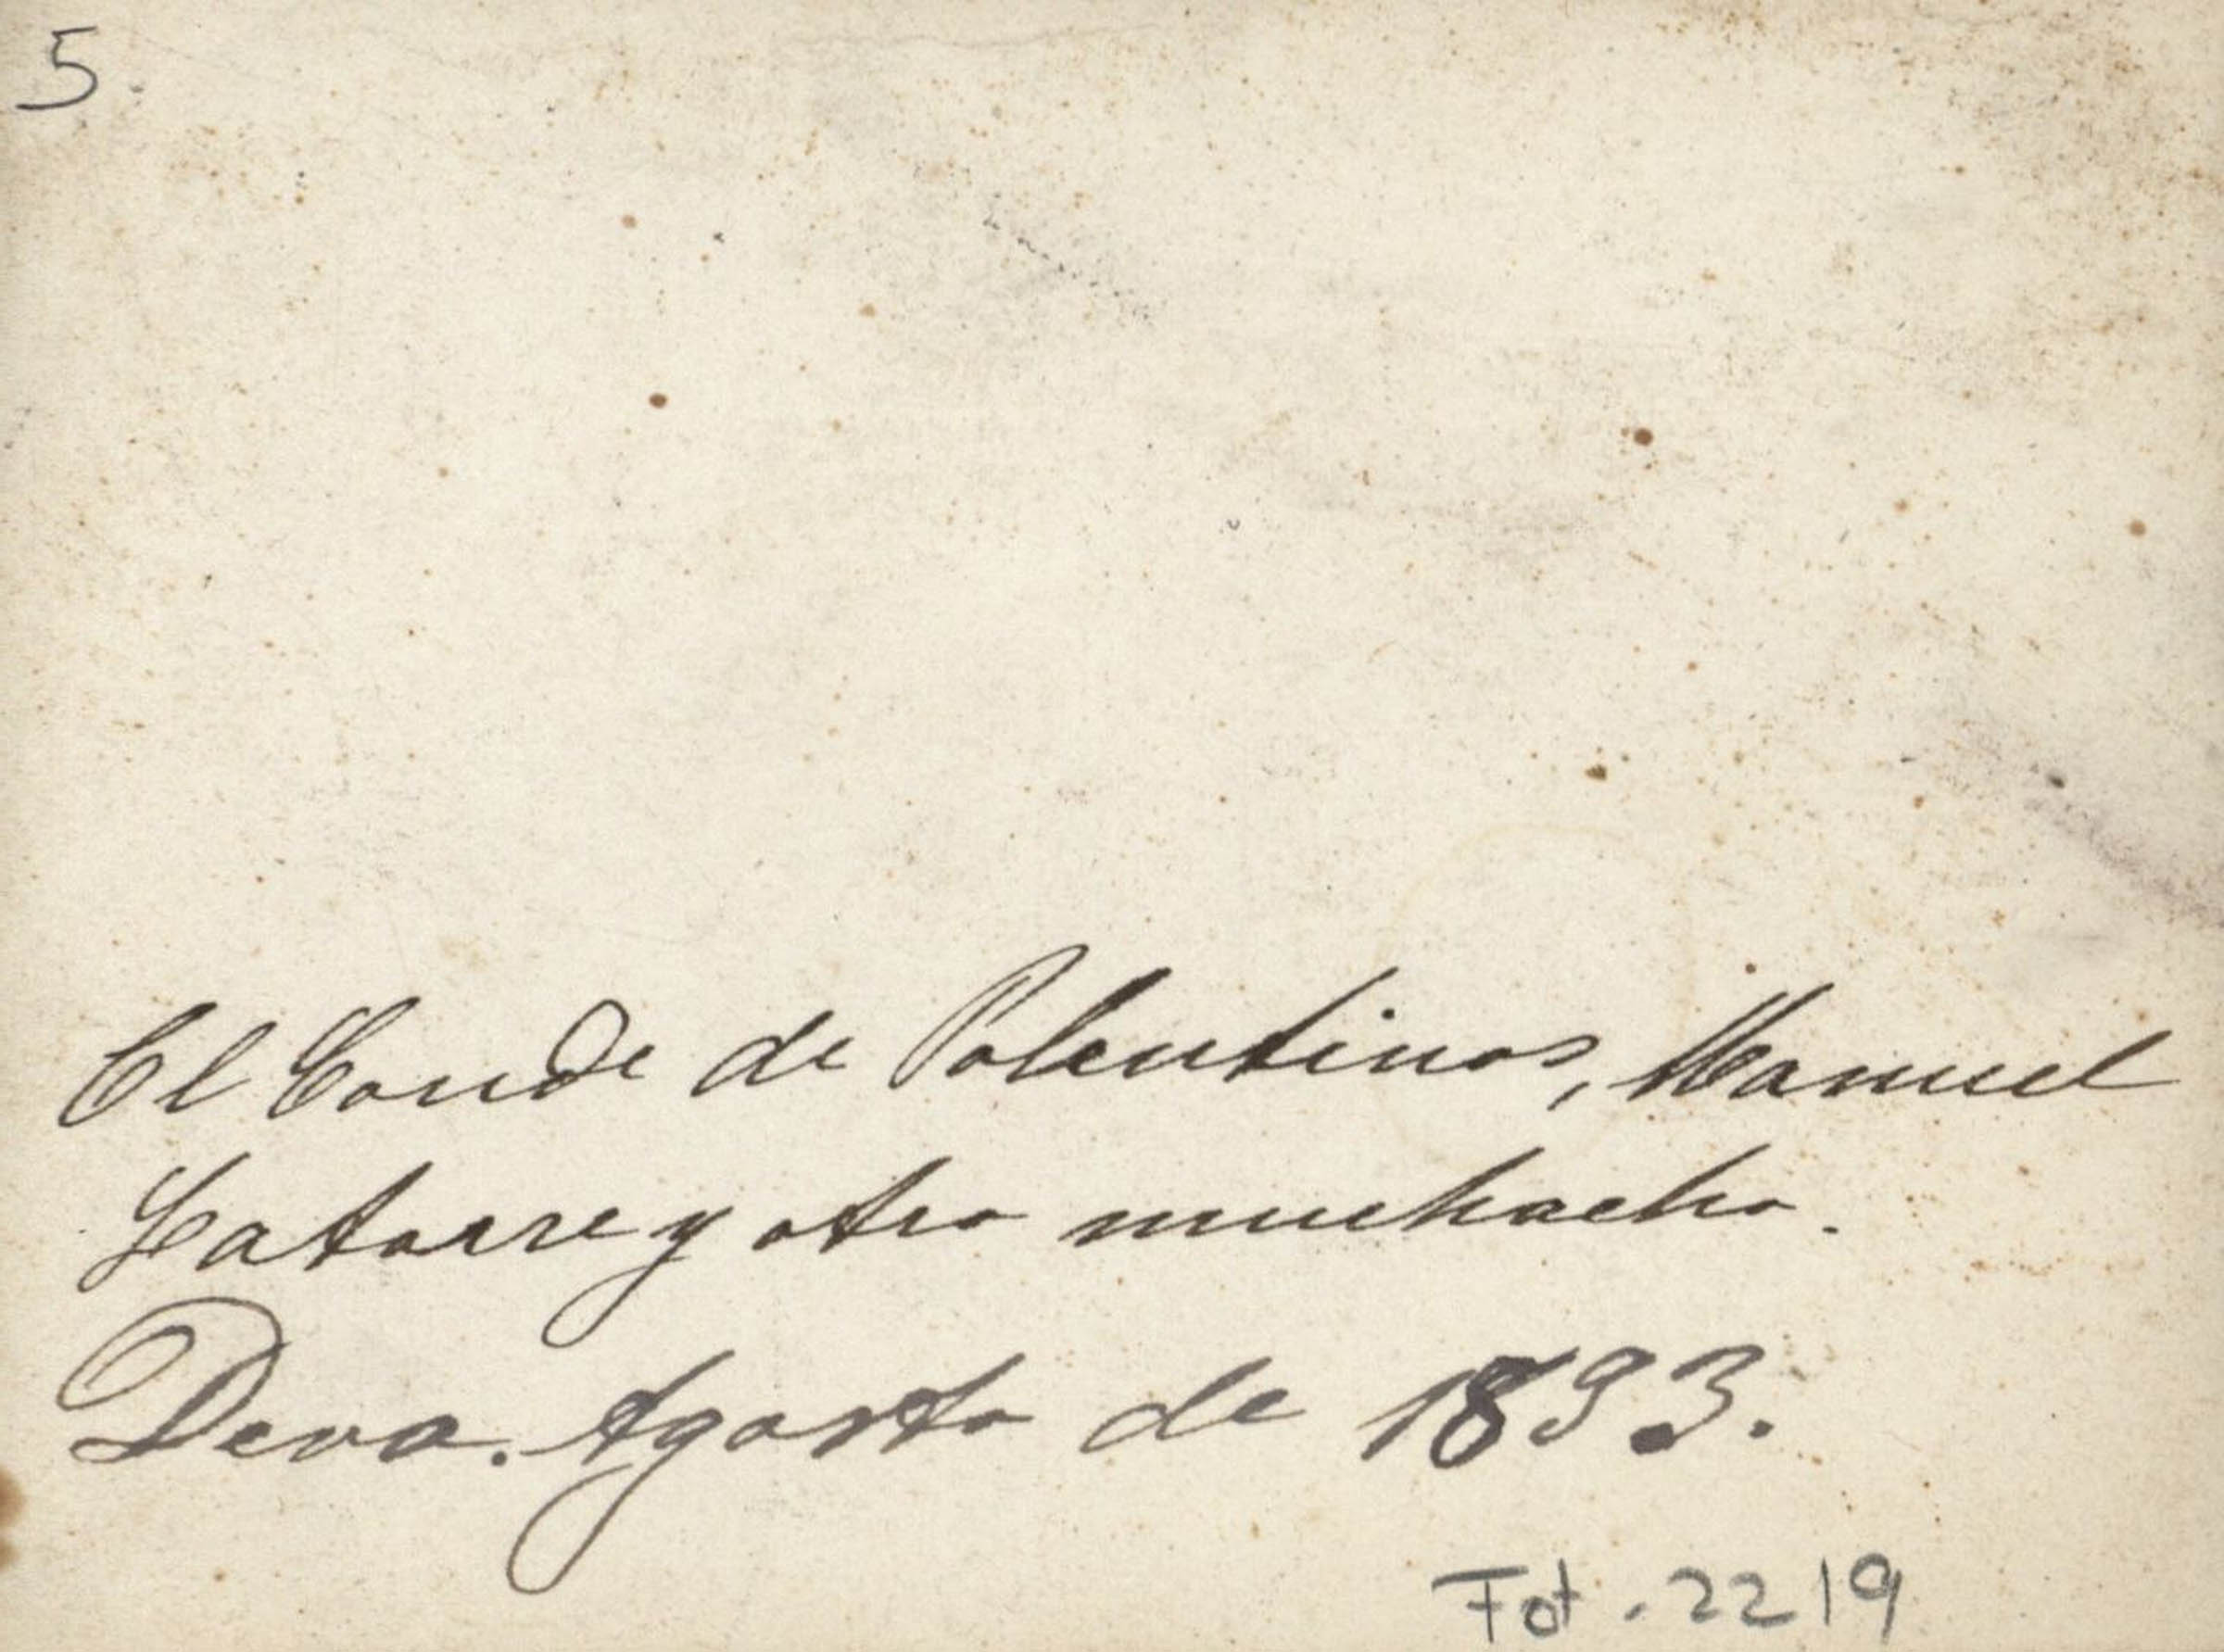 5.
El Conde de Polentinos, Manuel
Latorre y otro muchacho.
Deva. Agosto de 1893.
Fot. 2219